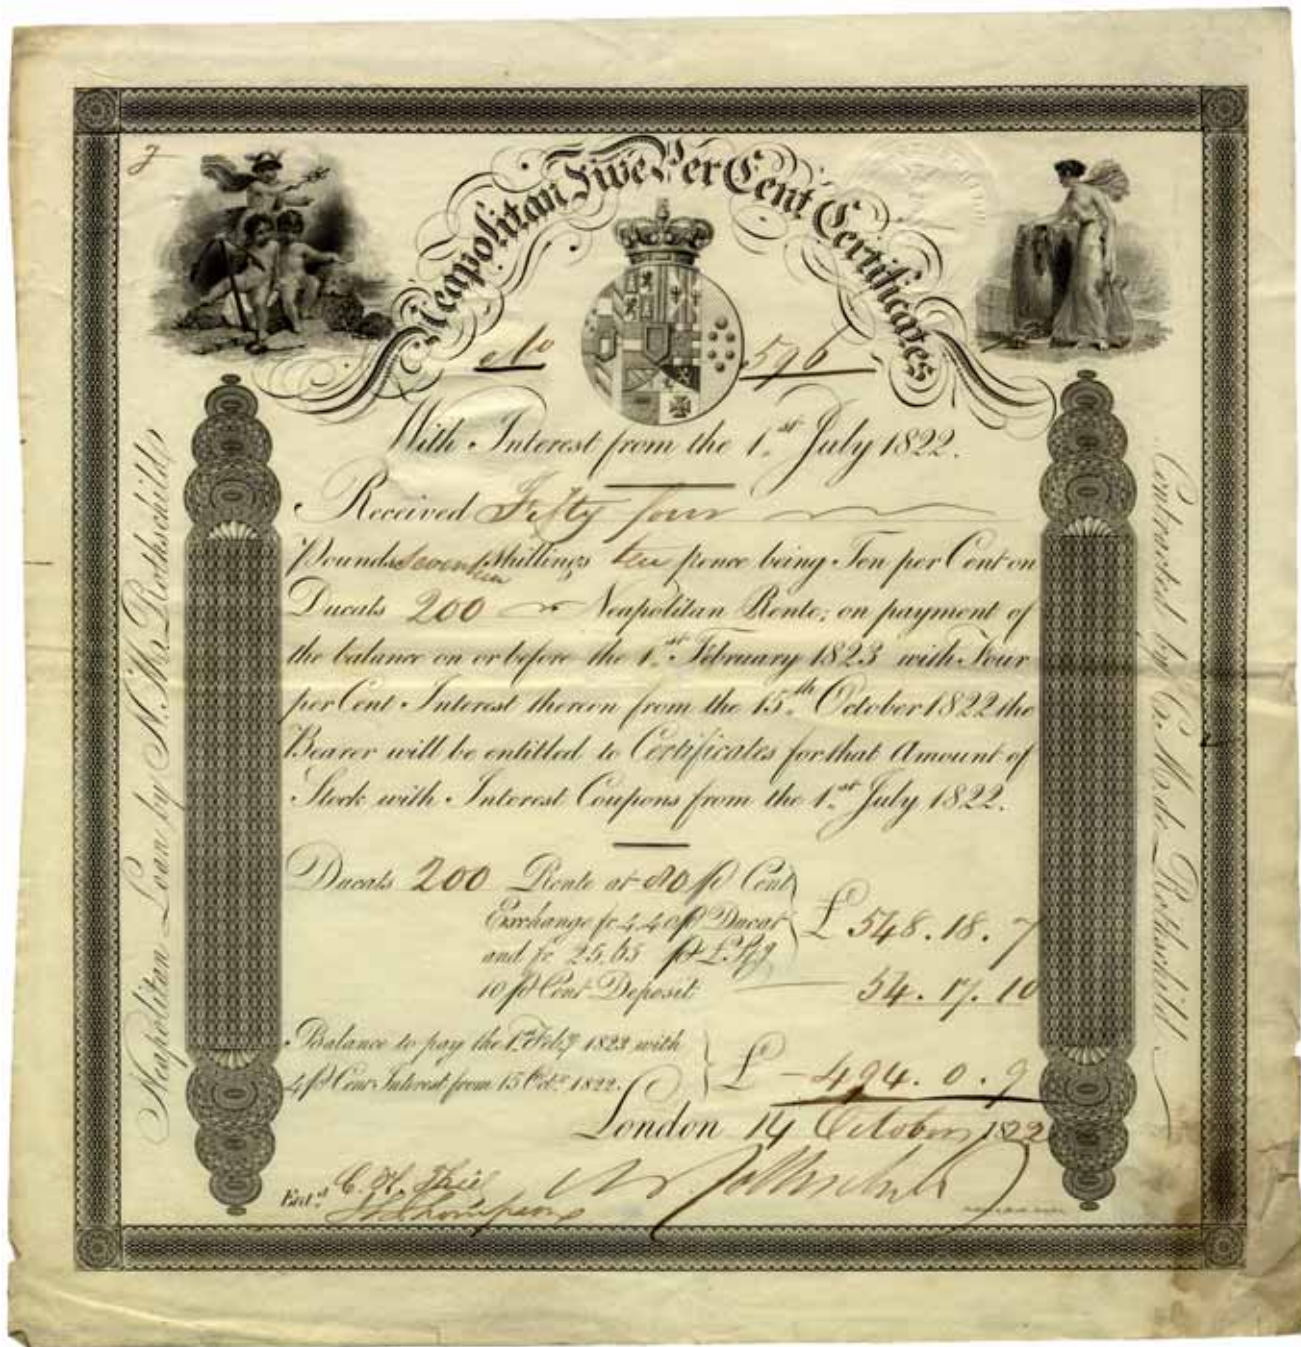 Neapolitan Five Per Cent Certificates
No 596
With Interest from the 1st July 1822.
Received Fifty four
Pounds Seventeen Shillings ten pence being Ten per Cent on
Ducats 200 Neapolitan Rente; on payment of
the balance on or before the 1st February 1823 with Four
per Cent Interest thereon from the 15th October 1822 the
Bearer will be entitled to Certificates for that Amount of
Stock with Interest Coupons from the 1st July 1822.
Ducats 200 Rente at 80 p Cent
Exchange fr 4.40 p Ducat
and fr 25.65 p £ Stg
£ 548.18.7
10 p Cent Deposit 54.17.10
Balance to pay the 1st Feby 1823 with
4 p Cent Interest from 15 Octr 1822.
£ 494.0.9
London 14 October 1822
Entd C. H. Thompson
Neapolitan Loan by N. M. Rothschild
Contracted by C. M. de Rothschild